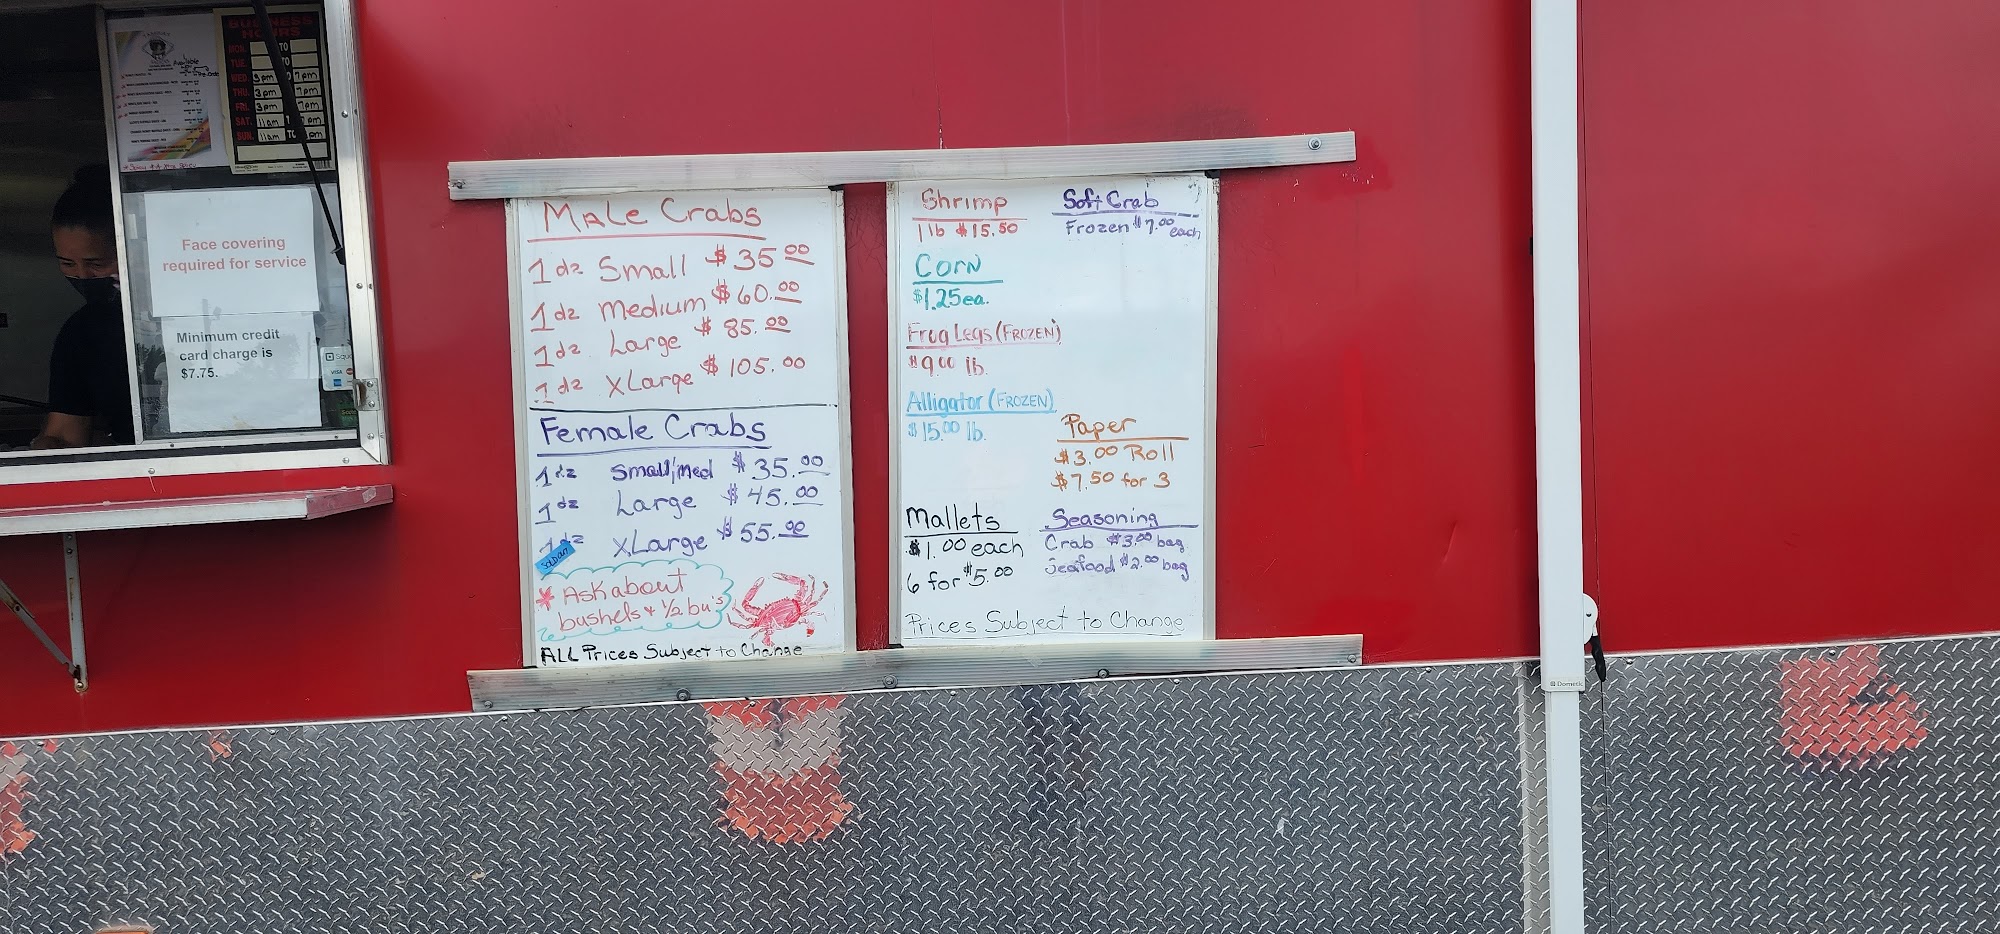 BUSINESS
HOURS
MON. TO
TUE. TO
WED. 3pm 7pm
THU. 3pm 7pm
FRI. 3pm 7pm
SAT. 11am TO 7pm
SUN. 11am TO pm
Available
Face covering
required for service
Minimum credit
card charge is
$7.75.
VISA
Male Crabs
1 dz Small $35.00
1 dz Medium $60.00
1 dz Large $85.00
1 dz XLarge $105.00
Female Crabs
1 dz Small/Med $35.00
1 dz Large $45.00
1 dz XLarge $55.00
* Ask about
bushels + 1/2 bu's
ALL Prices Subject to Change
Shrimp
1 lb $15.50
Soft Crab
Frozen $7.00 each
Corn
$1.25 ea.
Frog Legs (FROZEN)
$9.00 lb.
Alligator (FROZEN)
$15.00 lb.
Paper
$3.00 Roll
$7.50 for 3
Mallets
$1.00 each
6 for $5.00
Seasoning
Crab $3.00 bag
Seafood $2.00 bag
Prices Subject to Change
Dometic